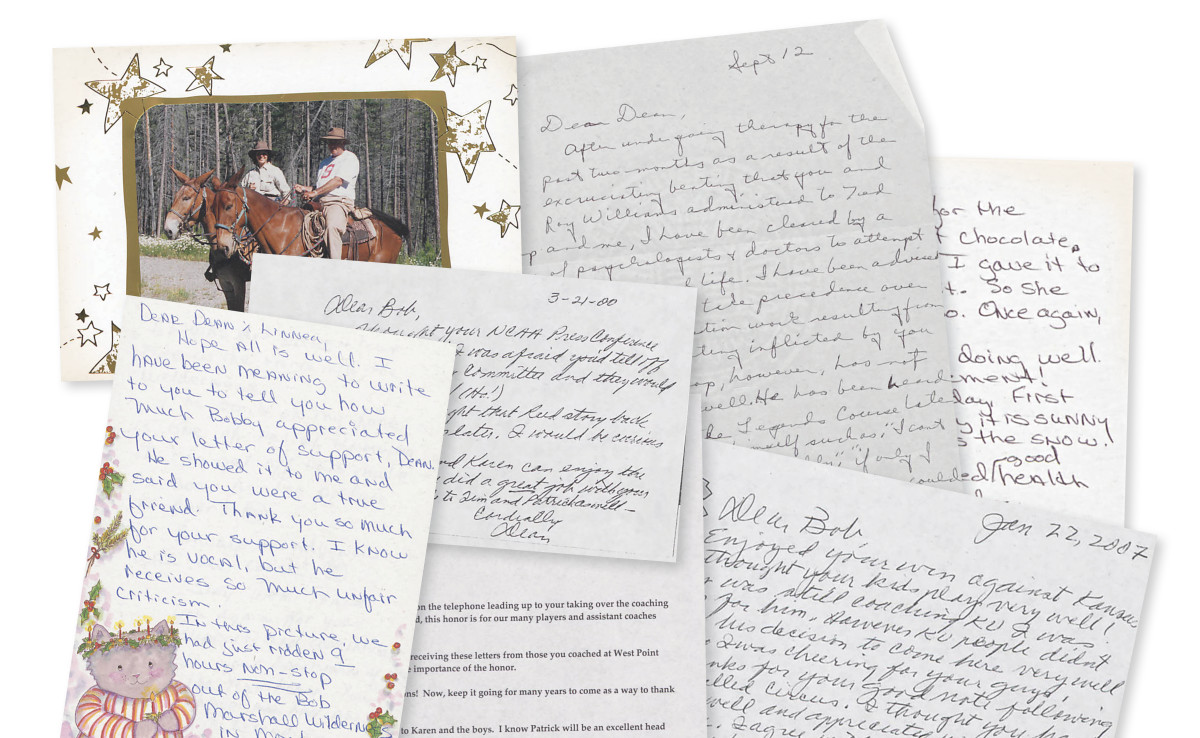 Sept 12
Dear Dean,
After undergoing therapy for the
past two months as a result of the
excruciating beating that you and
Roy Williams administered to Ted
p and me, I have been cleared by a
of psychologists & doctors to attempt
life. I have been advised
take precedence over
tion work resulting from
ting inflicted by you
op, however, has not
well. He has been heard
de Legends Course late
imself such as, "I can't
if only I
for the
chocolate.
I gave it to
t. So she
o. Once again,
doing well.
ment!
day, First
y it is sunny
s the snow.
good
health
3-21-00
Dear Bob,
thought your NCAA Press Conference
I was afraid you'd tell off
Committee and they would
(Ha!)
ght that Reid story back
later. I would be curious
nd Karen can enjoy the
did a great job with your
to Tim and Patrick as well-
Cordially
Dean
Dear Dean & Linnea,
Hope all is well. I
have been meaning to write
to you to tell you how
much Bobby appreciated
your letter of support, Dean.
He showed it to me and
said you were a true
friend. Thank you so much
for your support. I know
he is vocal, but he
receives so much unfair
criticism.
In this picture, we
had just ridden 9
hours non-stop
out of the Bob
Marshall Wilderness
in
on the telephone leading up to your taking over the coaching
d, this honor is for our many players and assistant coaches
receiving these letters from those you coached at West Point
e importance of the honor.
ns! Now, keep it going for many years to come as a way to thank
to Karen and the boys. I know Patrick will be an excellent head
Jan 22, 2007
Dear Bob
Enjoyed your win against Kansas
thought your kids play very well!
was still coaching KU I was
for him. However KU people didn't
his decision to come here very well
I was cheering for your guys!
nks for your good note following
alled circus. I thought you
well and appreciated
I agree